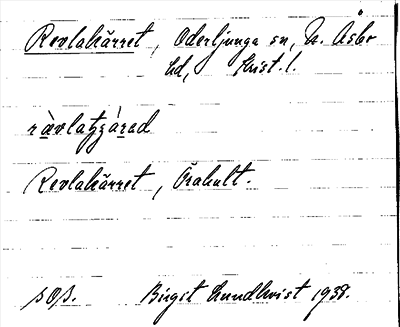 Revlakärret, Oderljunga sn, N. Åsbo
hd, Krist. l.
Revlakärret, Örahult.
sOp. Birgit Lundkvist 1938.